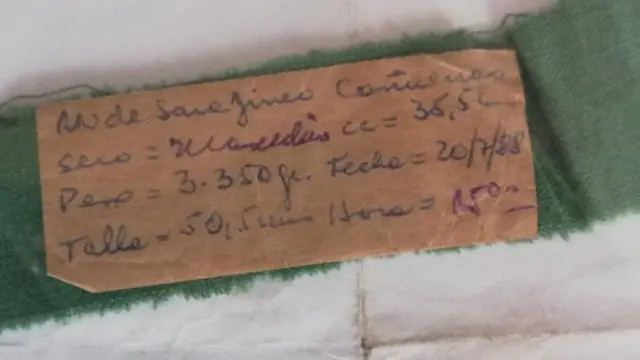 RN de Sara Jines Cañuenas
Sexo = Masculino cc = 35,5 c
Peso = 3.350 gr. Fecha = 20/7/88
Talla = 50,5 cm Hora = 1.50